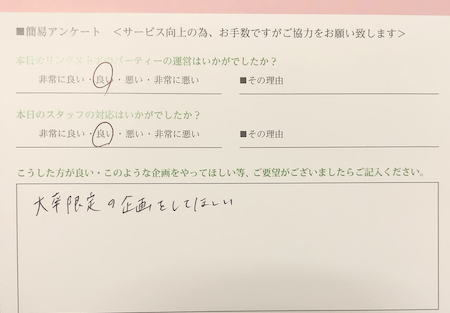 ■簡易アンケート <サービス向上の為、お手数ですがご協力をお願い致します>
本日のリンクスト主催パーティーの運営はいかがでしたか？
非常に良い・良い・悪い・非常に悪い ■その理由
本日のスタッフの対応はいかがでしたか？
非常に良い・良い・悪い・非常に悪い ■その理由
こうした方が良い・このような企画をやってほしい等、ご要望がございましたらご記入ください。
大卒限定の企画をしてほしい